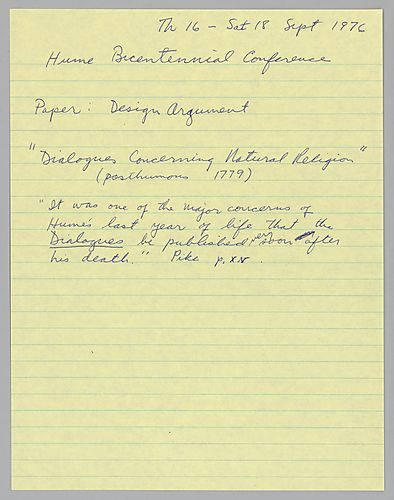 Th 16 – Sat 18 Sept 1976
Hume Bicentennial Conference
Paper: Design Argument
"Dialogues Concerning Natural Religion"
(posthumous 1779)
"It was one of the major concerns of
Hume's last year of life that the
Dialogues be published very soon after
his death." Pike p. xv.